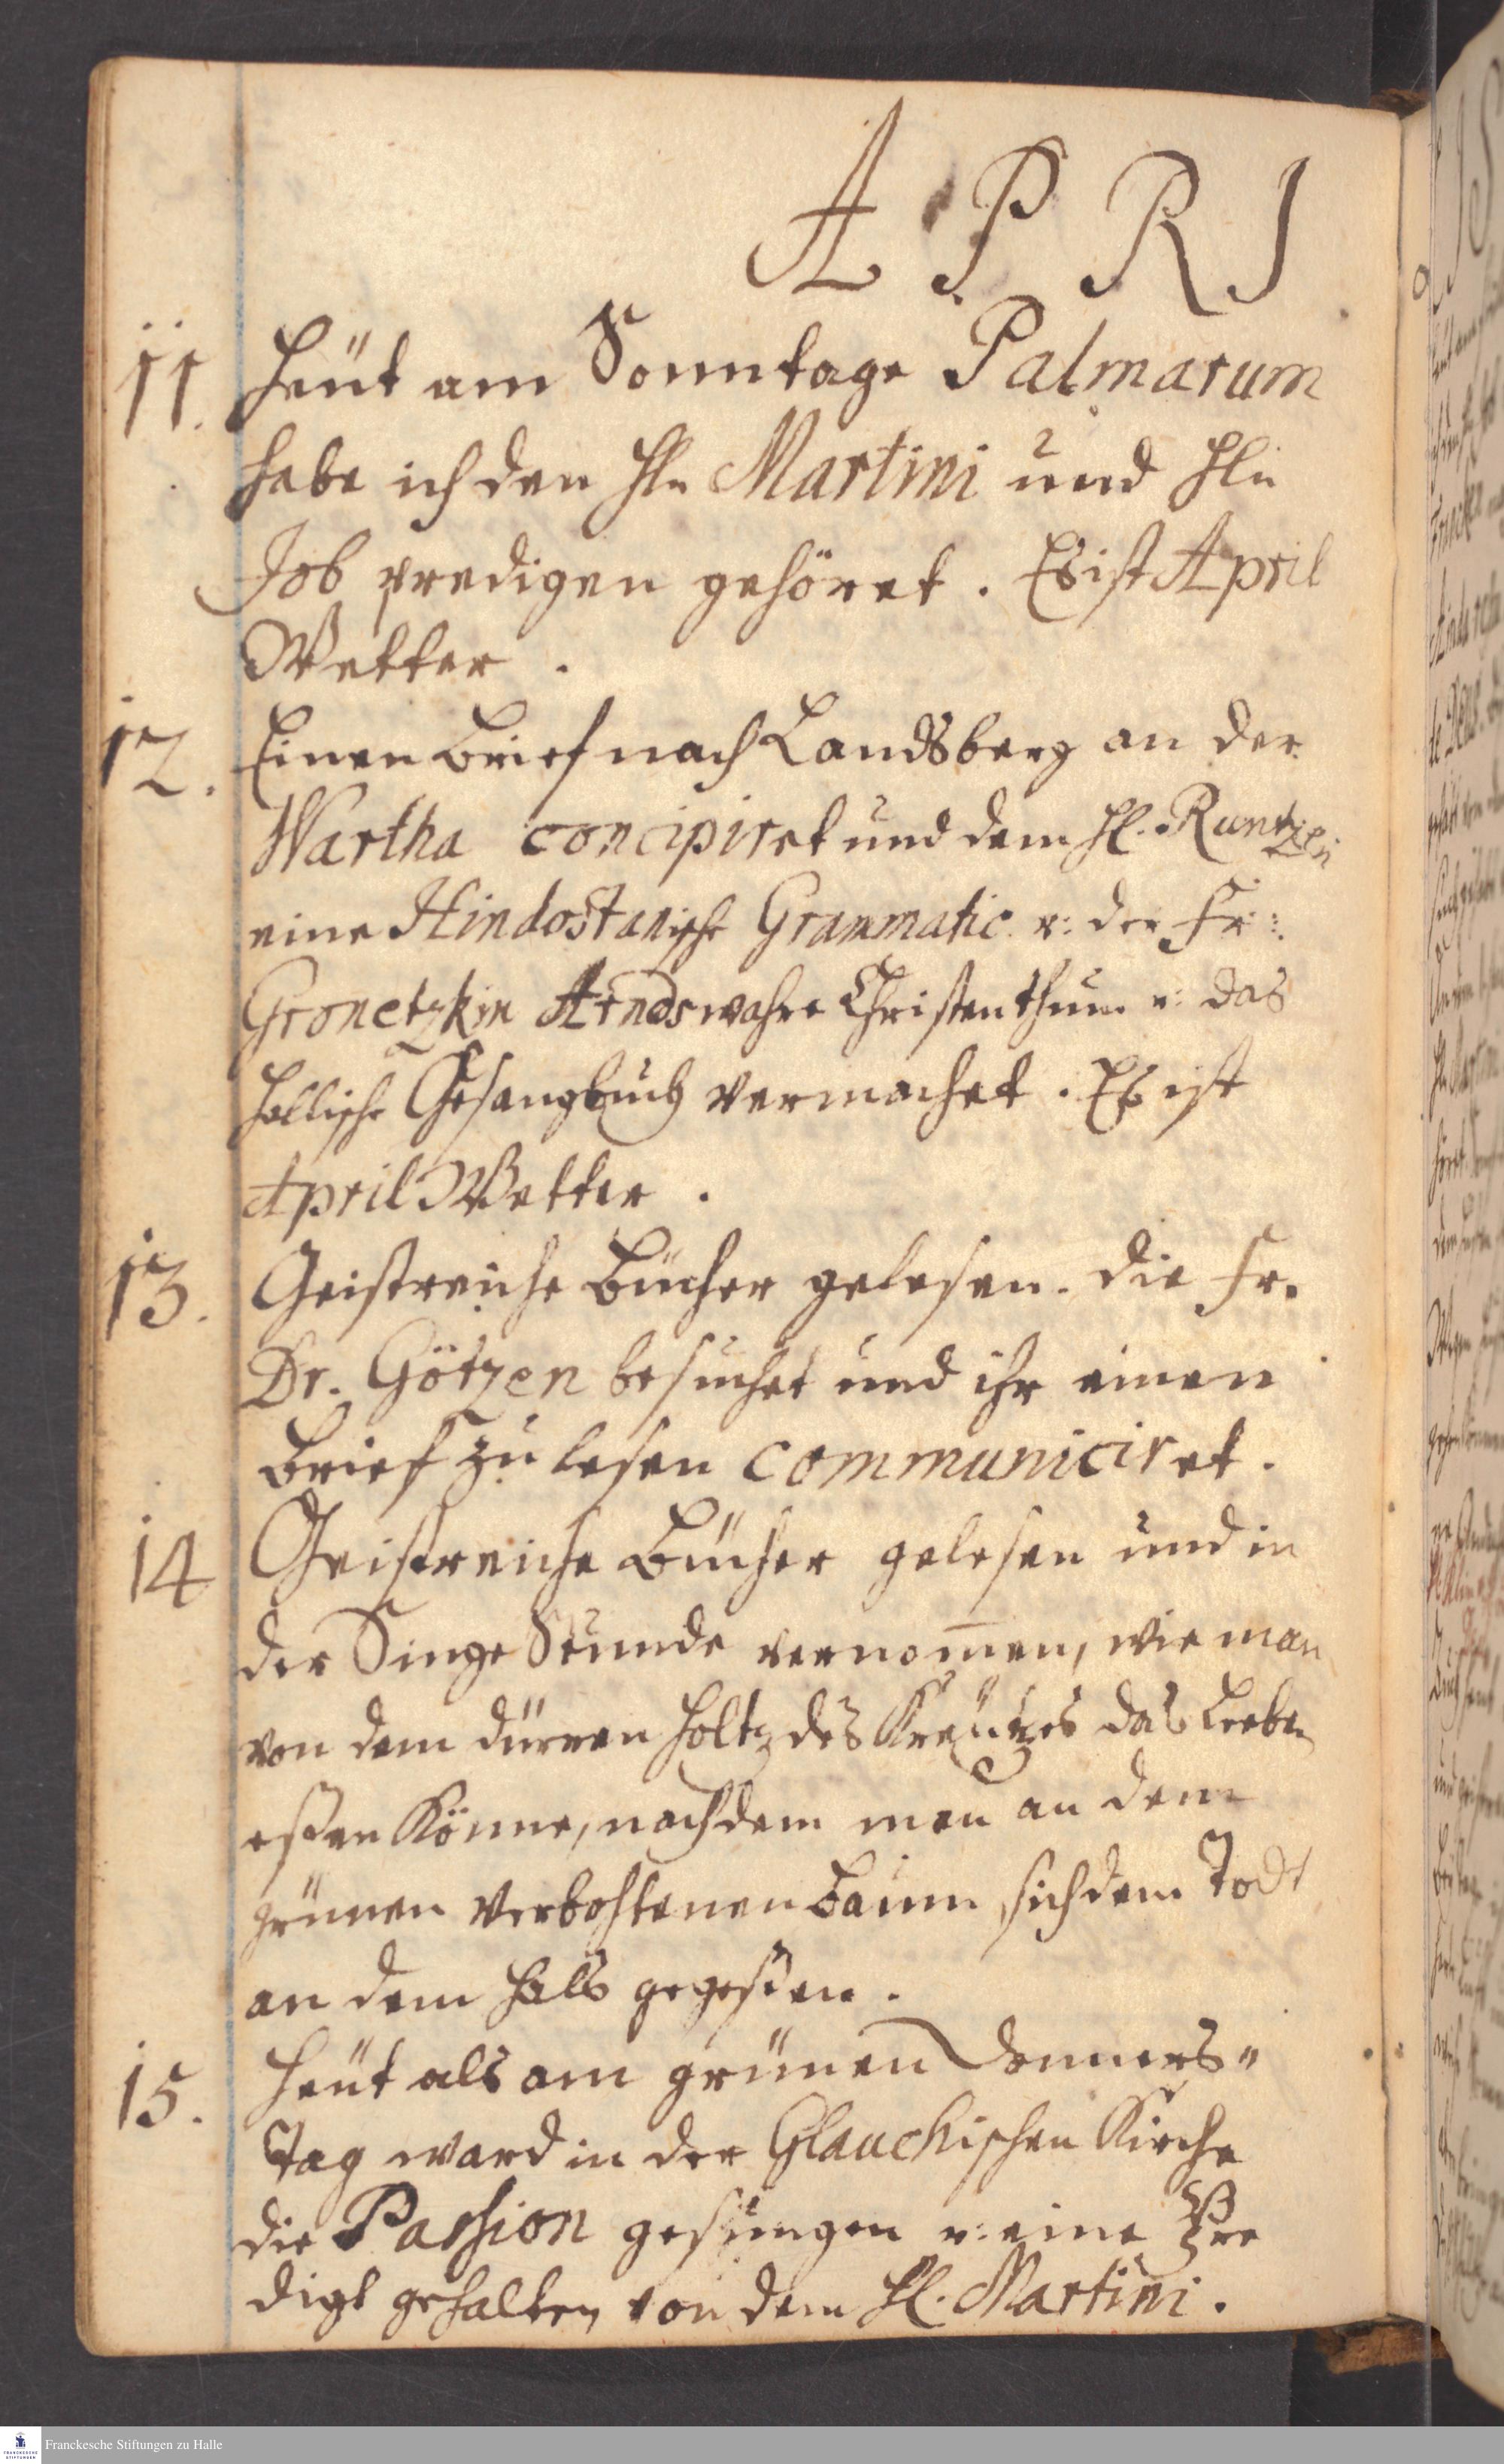 A P R I
11. Heüt am Sonntage Palmarum
habe ich den Hln Martini und Hln
Job predigen gehöret. Es ist April
Wetter.
12. Einen Brief nach Landsberg an der
Wartha concipiret und dem Hl. Runtzen
eine Hindostanische Grammatic u: der Fr:
Gronetzkin Arnds wahre Christenthum u: das
Hallische Gesangbuch vermachet. Es ist
April Wetter.
13. Geistreiche Bücher gelesen. Die Fr.
Dr. Götzen besuchet und ihr einen
Brief zu lesen communiciret.
14 Geistreiche Bücher gelesen und in
der Singe Stunde vernom̅en, wie man
von dem dürren Holtz des Kreützes das Leeben
eßen könne, nachdem man an dem
grünen verbohtenen Baum sich dem Todt
an dem Hals gegeßen.
15. Heüt als am grünen Donners"
tag ward in der Glauchischen Kirche
die Passion gesungen u: eine Pre
digt gehalten von dem Hl. Martini.
Franckesche Stiftungen zu Halle